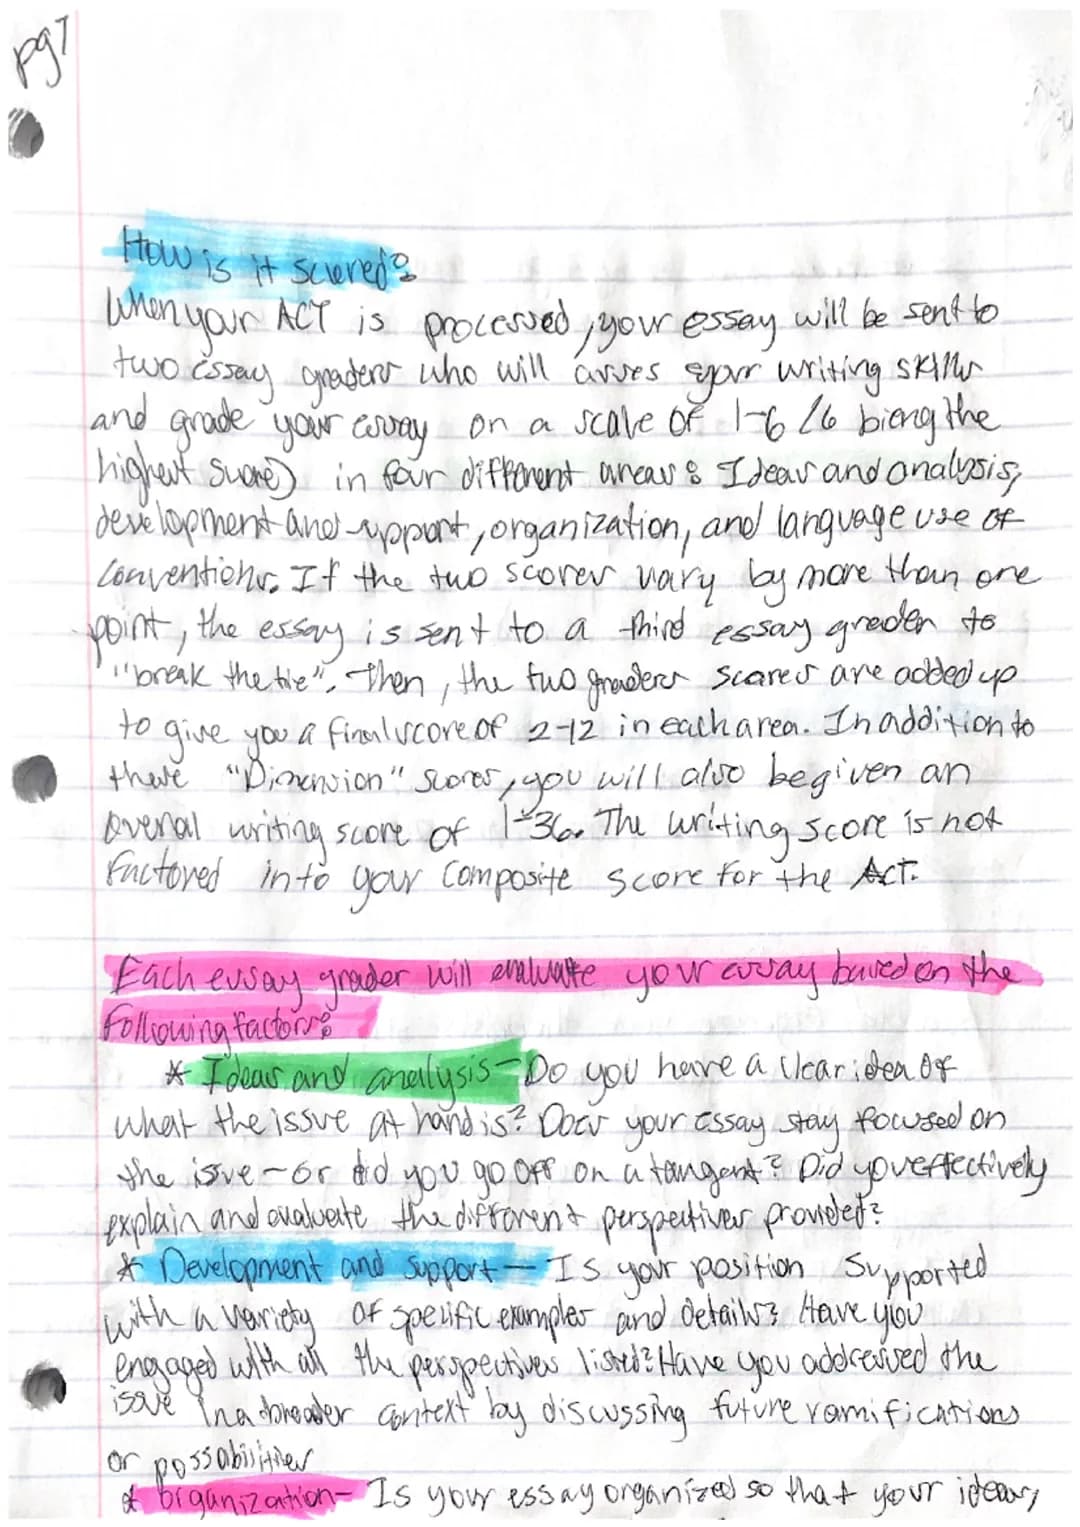 pg7
How is it scored?
When your ACT is processed, your essay will be sent to
two essay graders who will asses your writing skills
and grade your essay on a scale of 1-6 (6 bieng the
highest score) in four different areas: Ideas and analysis,
development and support, organization, and language use of
conventions. If the two scores vary by more than one
point, the essay is sent to a third essay grader to
"break the tie". Then, the two graders scores are added up
to give you a final score of 2-12 in each area. In addition to
these "Dimension" scores, you will also be given an
overal writing score of 1-36. The writing score is not
factored into your composite score for the ACT.
Each essay grader will evaluate your essay based on the
following factors:
* Ideas and analysis- Do you have a clear idea of
what the issue at hand is? Does your essay stay focused on
the issue - or did you go off on a tangent? Did you effectively
explain and evaluate the different perspectives provided?
* Development and support- Is your position supported
with a variety of specific examples and details? Have you
engaged with all the perspectives listed? Have you addressed the
issue in a broader context by discussing future ramifications
or possabilities
* Organization- Is your essay organized so that your ideas,